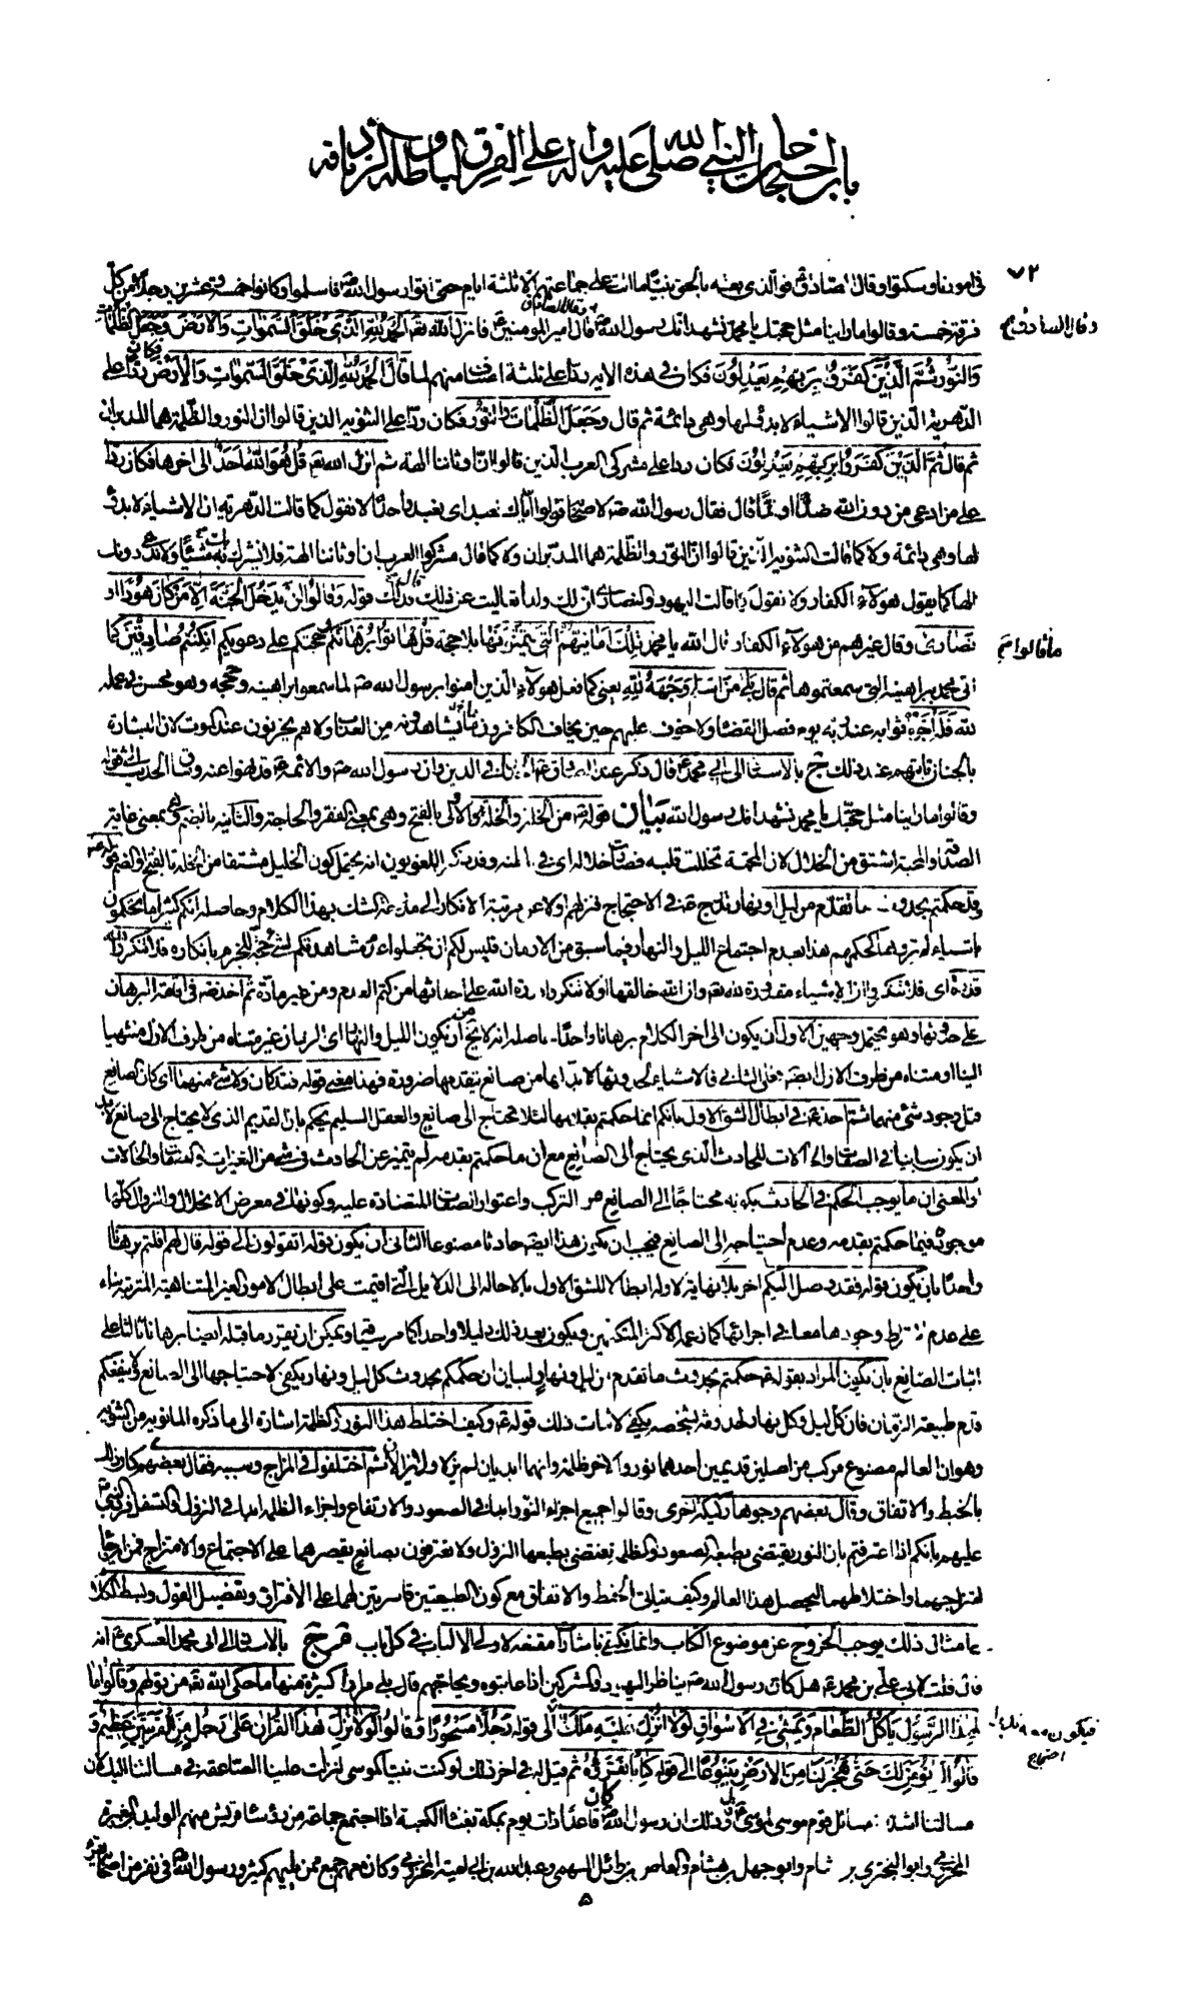 باب احتجاجات النبي صلى الله عليه واله على الفرق الباطلة
٧٢
في امورنا وسكتوا وقال الصادق فوالذي بعثه بالحق نبيا ما اتت على جماعتهم الا ثلثة ايام حتى اتوا رسول الله فاسلموا وكانوا خمسة وعشرين رجلا من كل
فرقة خمسة وقالوا ما راينا مثل حجتك يا محمد نشهد انك رسول الله قال امير المؤمنين فانزل الله تعه الحمد لله الذي خلق السموات والارض وجعل الظلمات
وقال الصادق
والنور ثم الذين كفروا بربهم يعدلون فكان في هذه الاية رد على ثلثة اصناف منهم لما قال الحمد لله الذي خلق السموات والارض فكان ردا على
الدهرية الذين قالوا الاشياء لا بدو لها وهي دائمة ثم قال وجعل الظلمات والنور فكان ردا على الثنوية الذين قالوا ان النور والظلمة هما المدبران
ثم قال ثم الذين كفروا بربهم يعدلون فكان ردا على مشركي العرب الذين قالوا ان اوثاننا الهة ثم انزل الله تعه قل هو الله احد الى اخرها فكان ردا
على من ادعى من دون الله ضدا او ندا قال فقال رسول الله ص لاصحابه قولوا اياك نعبد اي نعبد واحدا لا نقول كما قالت الدهرية ان الاشياء لا بدو
لها وهي دائمة ولا كما قالت الثنوية الذين قالوا ان النور والظلمة هما المدبران ولا كما قال مشركوا العرب ان اوثاننا الهة فلا نشرك بك شيئا ولا ندعو من دونك
الها كما يقول هؤلاء الكفار ولا نقول كما قالت اليهود والنصارى ان لك ولدا تعاليت عن ذلك قال فذلك قوله وقالوا لن يدخل الجنة الا من كان هودا او
نصارى وقال غيرهم من هؤلاء الكفار قال الله يا محمد تلك امانيهم التي يتمنونها بلا حجة قل هاتوا برهانكم حجتكم على دعويكم ان كنتم صادقين كما
اتى محمد ببراهينه التي سمعتموها ثم قال بلى من اسلم وجهه لله يعني كما فعل هؤلاء الذين امنوا برسول الله ص لما سمعوا براهينه وحججه وهو محسن في عمله
لله فله اجره ثوابه عند ربه يوم فصل القضاء ولا خوف عليهم حين يخاف الكافرون مما يشاهدونه من العذاب ولا هم يحزنون عند الموت لان البشارة
بالجنان تاتيهم عند ذلك ج بالاسناد الى ابي محمد قال ذكر عند الصادق الجدال في الدين وان رسول الله ص والائمة قد نهوا عنه وساق الحديث الى قوله
وقالوا ما راينا مثل حجتك يا محمد نشهد انك رسول الله بيان قوله من الخلة والخلة الاولى بالفتح وهي بمعنى الفقر والحاجة والثانية بالضم وهي بمعنى غاية
الصداقة والمحبة اشتق من الخلال لان المحبة تخللت قلبه فصارت خلاله اي في باطنه وقد ذكر اللغويون انه يحتمل كون الخليل مشتقا من الخلة بالفتح والضم قوله
وقد حكمتم بحدوث ما تقدم من ليل ونهار تدرج في الاحتجاج فنزلهم اولا عن مرتبة الانكار الى مدرجة الشك بهذا الكلام وحاصله انكم كثيرا ما تحكمون
باشياء لم تروها كحكمهم هذا بعدم اجتماع الليل والنهار فيما سبق من الازمان فليس لكم ان تجعلوا عدم مشاهدتكم لشئ حجة للجزم بانكاره قوله فلا تنكروا لله
قدرة اي فلا تنكروا ان الاشياء مقدورة لله تعه وان الله خالقها او لا تنكروا قدرة الله على احداثها من كتم العدم ومن غير مادة ثم اخذ في اقامة البرهان
على حدوثها وهو يحتمل وجهين الاول ان يكون الى اخر الكلام برهانا واحدا حاصله انه لا يخلو من ان يكون الليل والنهار اي الزمان غير متناه من طرف الازل منتهيا
الينا او متناه من طرف الازل ايضه فعلى الثاني فالاشياء لحدوثها لا بد لها من صانع يتقدمها ضرورة فهذا معنى قوله فقد كان ولا شئ منهما اي كان الصانع
قبل وجود شئ منهما ثم اخذ في ابطال الشق الاول بانكم انما حكمتم بقدمها لئلا يحتاج الى صانع والعقل السليم يحكم بان القديم الذي لا يحتاج الى صانع لا بد
ان يكون مباينا في الصفات والحالات للحادث الذي يحتاج الى الصانع مع ان ما حكمتم بقدمه لم يتميز عن الحادث في شئ من التغيرات والصفات والحالات
او المعنى ان ما يوجب الحكم في الحادث بكونه محتاجا الى الصانع من التركب واعتوار الصفات المتضادة عليه وكونها في معرض الانحلال والزوال كلها
موجودة فيما حكمتم بقدمه وعدم احتياجه الى الصانع فيجب ان يكون هذا ايضه حادثا مصنوعا الثاني ان يكون قوله اتقولون الى قوله قال لهم اقلتم برهانا
واحدا بان يكون قوله فقد وصل اليكم اخر بلا نهاية لاوله ابطالا للشق الاول بالاحالة الى الدلايل التي اقيمت على ابطال الامور الغير المتناهية المترتبة بناء
على عدم اشتراط وجودها معا في اجرائها كما زعمه اكثر المتكلمين ويكون بعد ذلك دليلا واحدا كما مر سياقه ويمكن ان يقرر ما قبله ايضا برهانا ثالثا على
اثبات الصانع بان يكون المراد بقوله حكمتم بحدوث ما تقدم من ليل ونهار لبيان ان حكمكم بحدوث كل ليل ونهار يكفي لاحتياجها الى الصانع ولا ينفعكم
قدم طبيعة الزمان فان كل ليل وكل نهار لحدوثه بشخصه يكفي لاثبات ذلك قوله وكيف اختلط هذا النور والظلمة اشارة الى ما ذكره المانوية من الثنوية
وهو ان العالم مصنوع مركب من اصلين قديمين احدهما نور والاخر ظلمة وانهما ابديان لم يزالا ولن يزالا ثم اختلفوا في المزاج وسببه فقال بعضهم كان ذلك
بالخبط والاتفاق وقال بعضهم وجوها ركيكة اخرى وقالوا جميع اجزاء النور ابدا في الصعود والارتفاع واجزاء الظلمة ابدا في النزول والتسفل فرد النبي
عليهم بانكم اذا اعترفتم بان النور يقتضي بطبعه الصعود والظلمة يقتضي بطبعها النزول ولا تعترفون بصانع يقسرهما على الاجتماع والامتزاج فمن اين جاء
امتزاجهما واختلاطهما ليحصل هذا العالم وكيف يتاتى الخبط والاتفاق مع كون الطبيعتين قاسرتين لهما على الافتراق وتفصيل القول وبسط الكلام
في امثال ذلك يوجب الخروج عن موضوع الكتاب وانما نكتفي باشارات مقنعة لاولي الالباب في كل باب م ج بالاسناد الى ابي محمد العسكري انه
قال قلت لابي علي بن محمد هل كان رسول الله ص يناظر اليهود والمشركين اذا عاتبوه ويحاجهم قال بلى مرارا كثيرة منها ما حكى الله تعه من قولهم وقالوا ما
لهذا الرسول ياكل الطعام ويمشي في الاسواق لولا انزل عليه ملك الى قوله رجلا مسحورا وقالوا لولا نزل هذا القران على رجل من القريتين عظيم و
قالوا لن نؤمن لك حتى تفجر لنا من الارض ينبوعا الى قوله كتابا نقرؤه ثم قيل له في اخر ذلك لو كنت نبيا كموسى لنزلت علينا الصاعقة في مسالتنا اليك لان
مسالتنا اشد من مسائل قوم موسى لموسى قال وذلك ان رسول الله كان قاعدا ذات يوم بمكة بفناء الكعبة اذا اجتمع جماعة من رؤساء قريش منهم الوليد بن المغيرة
المخزومي وابو البختري بن هشام وابو جهل بن هشام والعاص بن وائل السهمي وعبد الله بن ابي امية المخزومي وكان معهم جمع ممن يليهم كثير ورسول الله في نفر من اصحابه